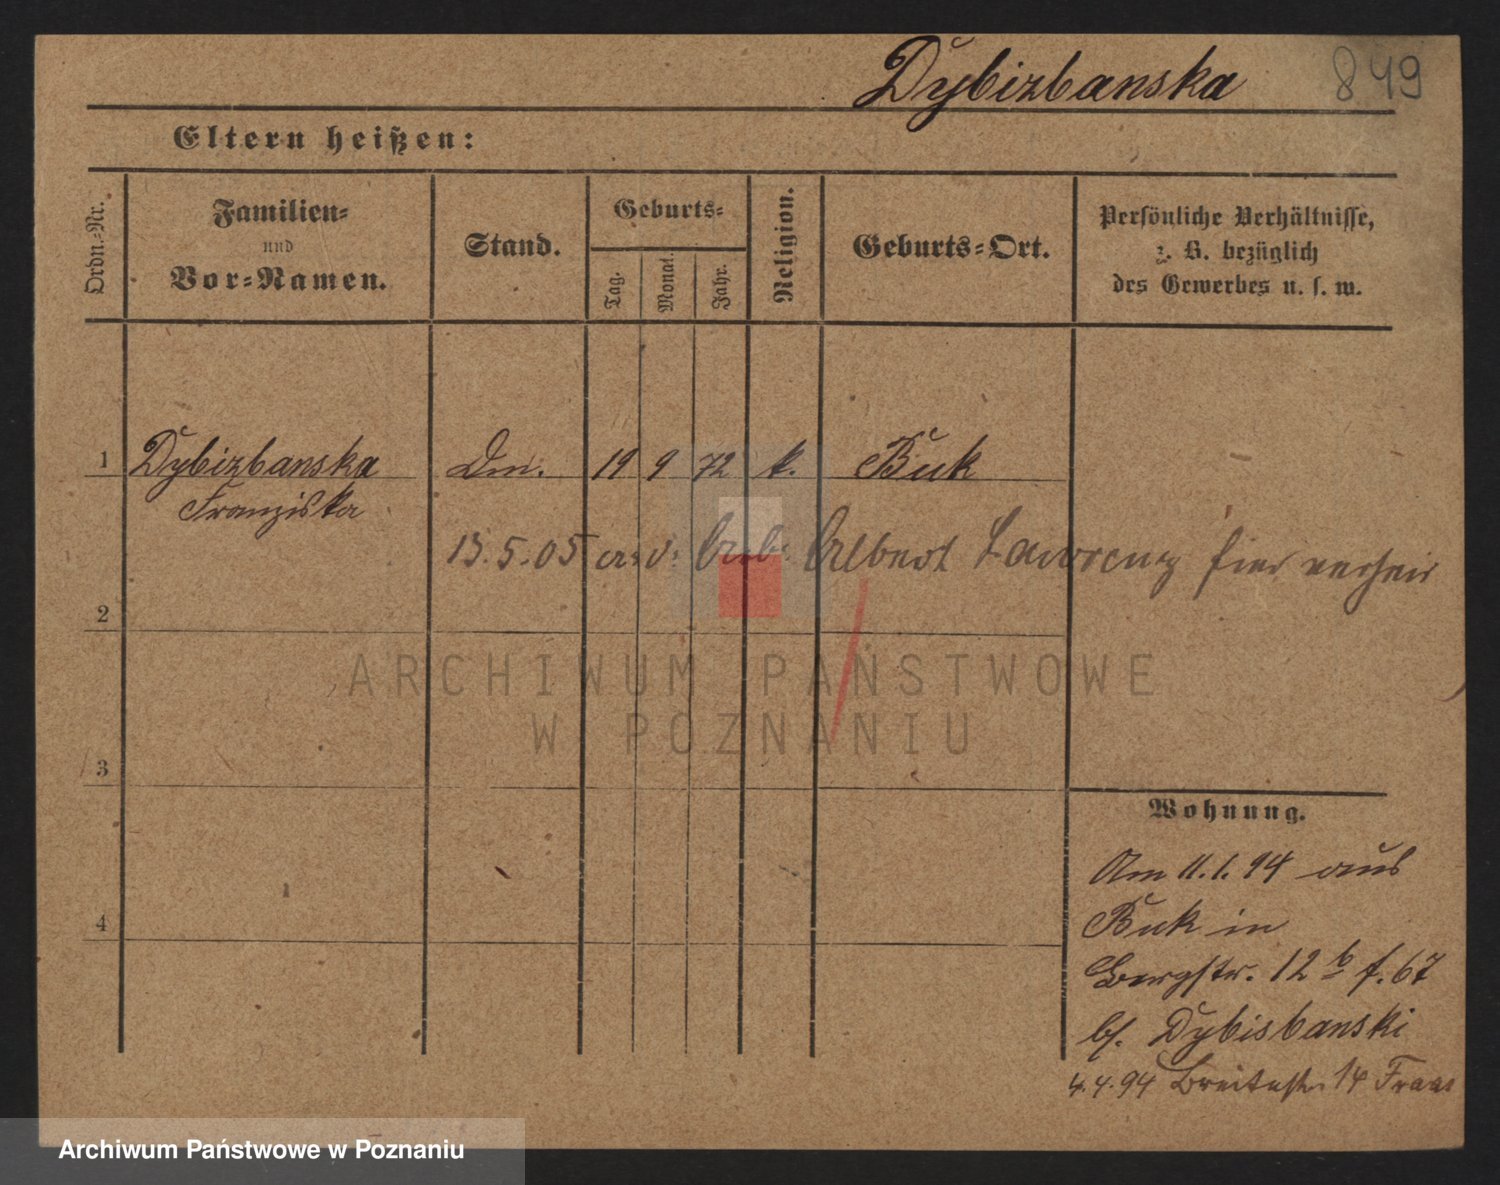 Dybizbanska 849
Eltern heißen:
Ordn.-Nr.
Familien-
und
Vor-Namen.
Stand.
Geburts-
Tag.
Monat.
Jahr.
Religion.
Geburts-Ort.
Persönliche Verhältnisse,
z. B. bezüglich
des Gewerbes u. s. w.
1 Dybizbanska Dm. 19 9 72 k. Buk
Franziska
13.5.05 Albert Lawrenz hier verheir
2
ARCHIWUM PAŃSTWOWE
W POZNANIU
3
Wohnung.
Am 11.1.94 aus
Buk in
Bergstr. 12 b f. 67
bf. Dybisbanski
4
4.4.94 Breitestr. 14 Fraas
Archiwum Państwowe w Poznaniu